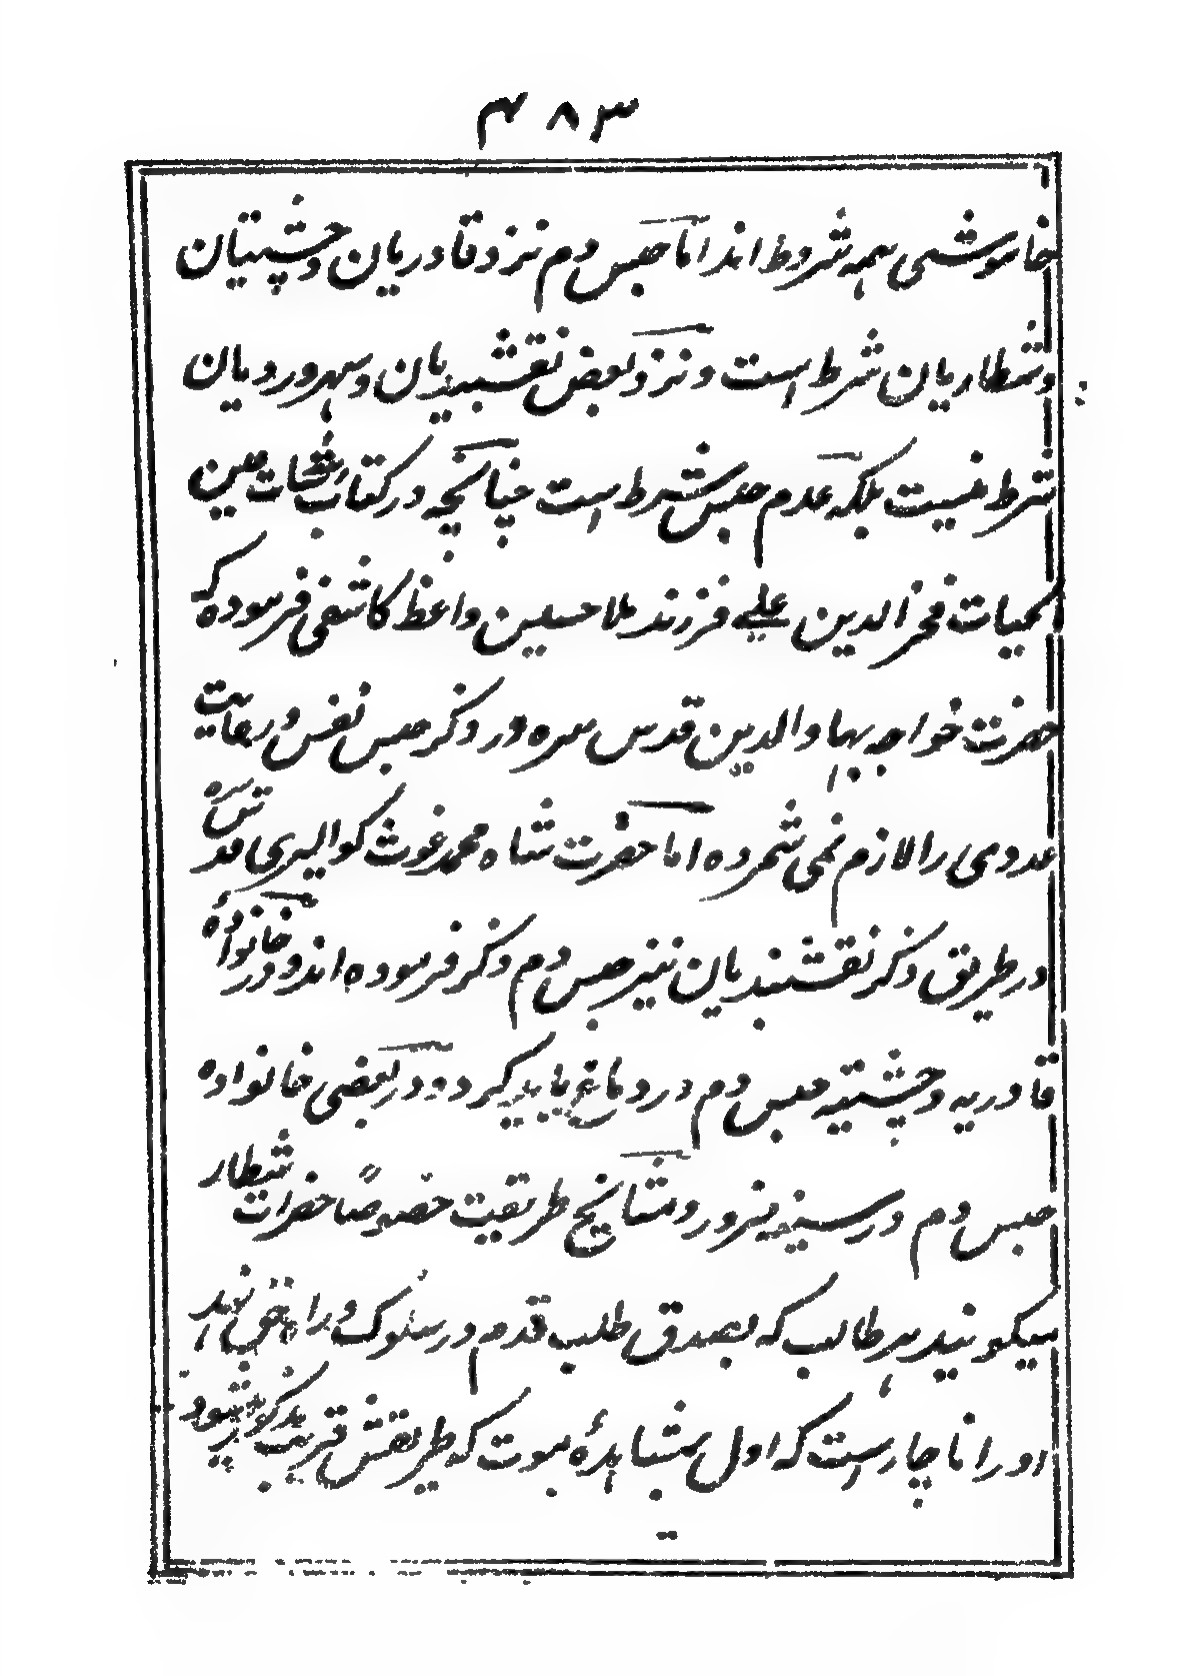 ۴۸۳
خاموشی همه شروط اند اما حبس دم نزد قادریان و چشتیان
و شطاریان شرط است و نزد بعض نقشبندیان و سهروردیان
شرط نیست بلکه عدم حبس شرط است چنانچه در کتاب رشحات عین
الحیات فخر الدین علی فرزند ملا حسین واعظ کاشفی فرموده که
حضرت خواجه بهاوالدین قدس سره در ذکر حبس نفس و رعایت
عددی را لازم نمی شمرده اما حضرت شاه محمد غوث کوالیری قدس سره
در طریق ذکر نقشبندیان نیز حبس دم ذکر فرموده اند و در خانواده
قادریه و چشتیه حبس دم در دماغ باید کرد و در بعضی خانواده
حبس دم در سینه نیز و در مشایخ طریقت خصوصا حضرات شطار
میگویند هر طالب که بصدق طلب قدم در سلوک راه حق نهد
او را ناچارست که اول بمشاهدهٔ موت که طریقش قریب مذکور میشود